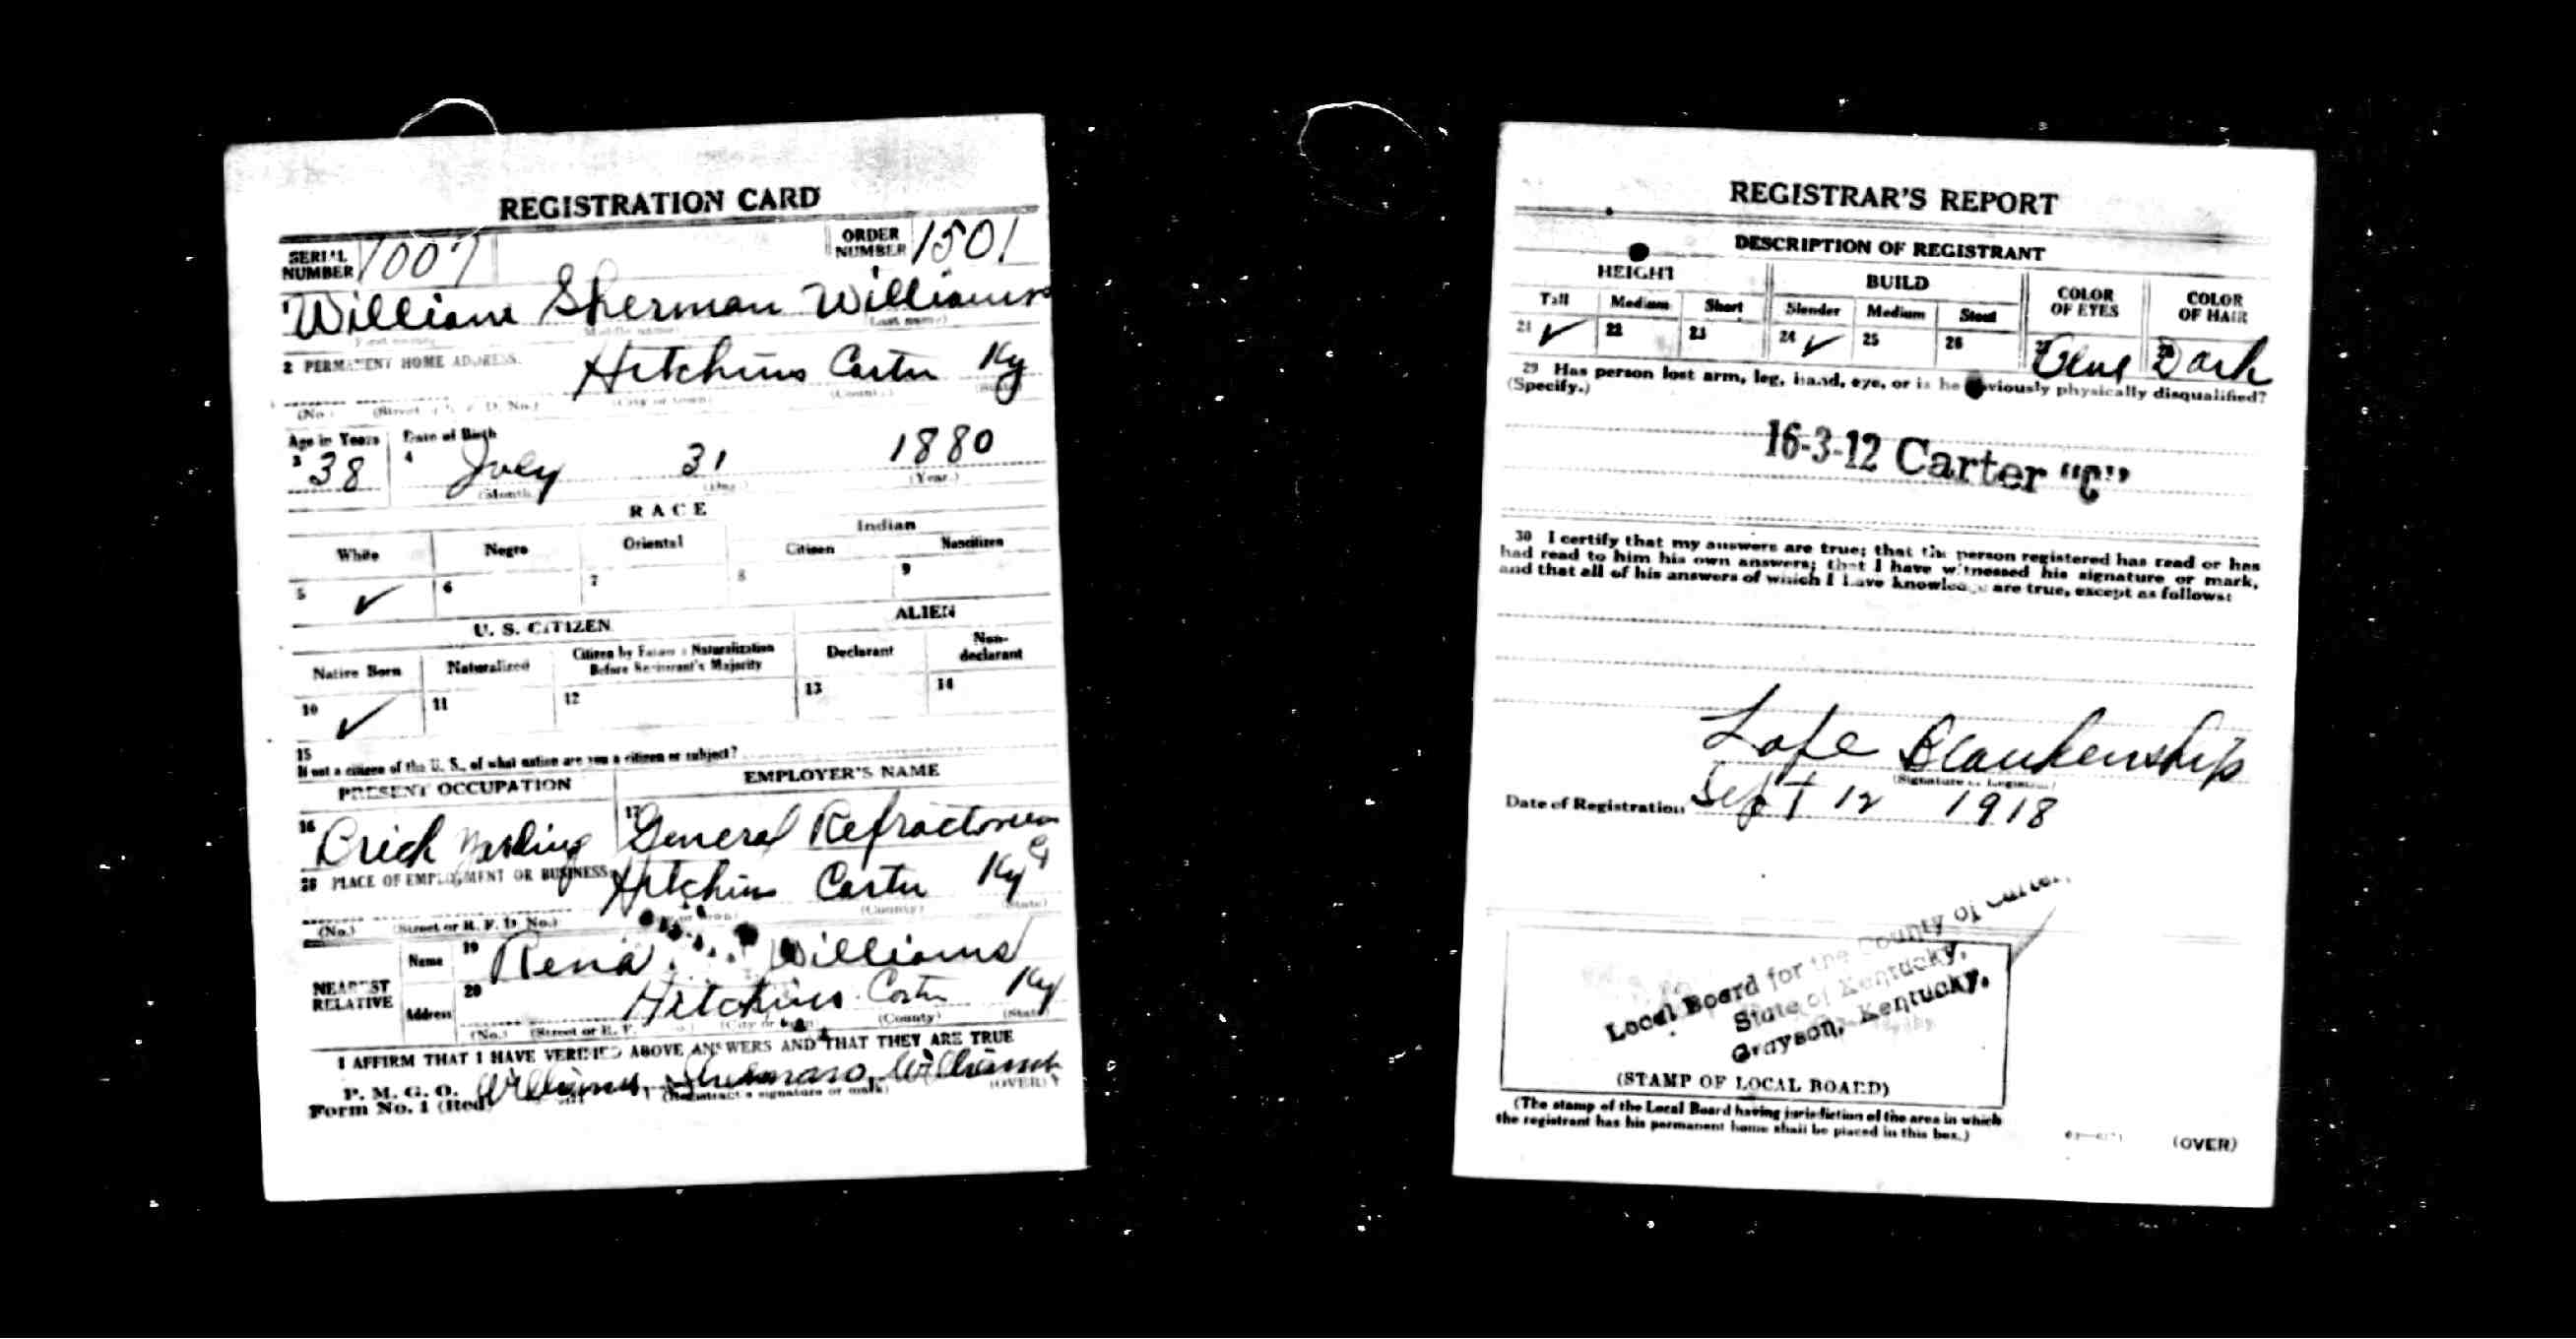 REGISTRATION CARD
SERIAL NUMBER 1007 ORDER NUMBER 1501
William Sherman Williams
(Last name)
2 PERMANENT HOME ADDRESS: Hitchins Carter Ky
(No.) (Street or R. F. D. No.) (City or town) (County)
Age in Years Date of Birth
3 38 4 July 31 1880
(Month) (Day) (Year)
RACE
White Negro Oriental Indian
Citizen Noncitizen
5 ✓ 6 7 8 9
U. S. CITIZEN ALIEN
Native Born Naturalized Citizen by Father's Naturalization Before Registrant's Majority Declarant Non-declarant
10 ✓ 11 12 13 14
15
If not a citizen of the U. S., of what nation are you a citizen or subject?
PRESENT OCCUPATION EMPLOYER'S NAME
16 17 General Refractories
18 PLACE OF EMPLOYMENT OR BUSINESS: Hitchins Carter Ky
(No.) (Street or R. F. D. No.) (County) (State)
NEAREST RELATIVE Name 19 Rena Williams
Address 20 Hitchins Carter Ky
(No.) (City or town) (County) (State)
I AFFIRM THAT I HAVE VERIFIED ABOVE ANSWERS AND THAT THEY ARE TRUE
P. M. G. O.
Form No. 1 (Red) Sherman Williams
(Registrant's signature or mark) (OVER)
REGISTRAR'S REPORT
DESCRIPTION OF REGISTRANT
HEIGHT BUILD COLOR OF EYES COLOR OF HAIR
Tall Medium Short Slender Medium Stout
21 ✓ 22 23 24 ✓ 25 26 27 Blue 28 Dark
29 Has person lost arm, leg, hand, eye, or is he obviously physically disqualified?
(Specify.)
16-3-12 Carter "C"
30 I certify that my answers are true; that the person registered has read or has
had read to him his own answers; that I have witnessed his signature or mark,
and that all of his answers of which I have knowledge are true, except as follows:
Lafe Blankenship
Date of Registration Sept 12 1918
Local Board for the County of Carter,
State of Kentucky,
Grayson, Kentucky.
(STAMP OF LOCAL BOARD)
(The stamp of the Local Board having jurisdiction of the area in which
the registrant has his permanent home shall be placed in this box.)
(OVER)